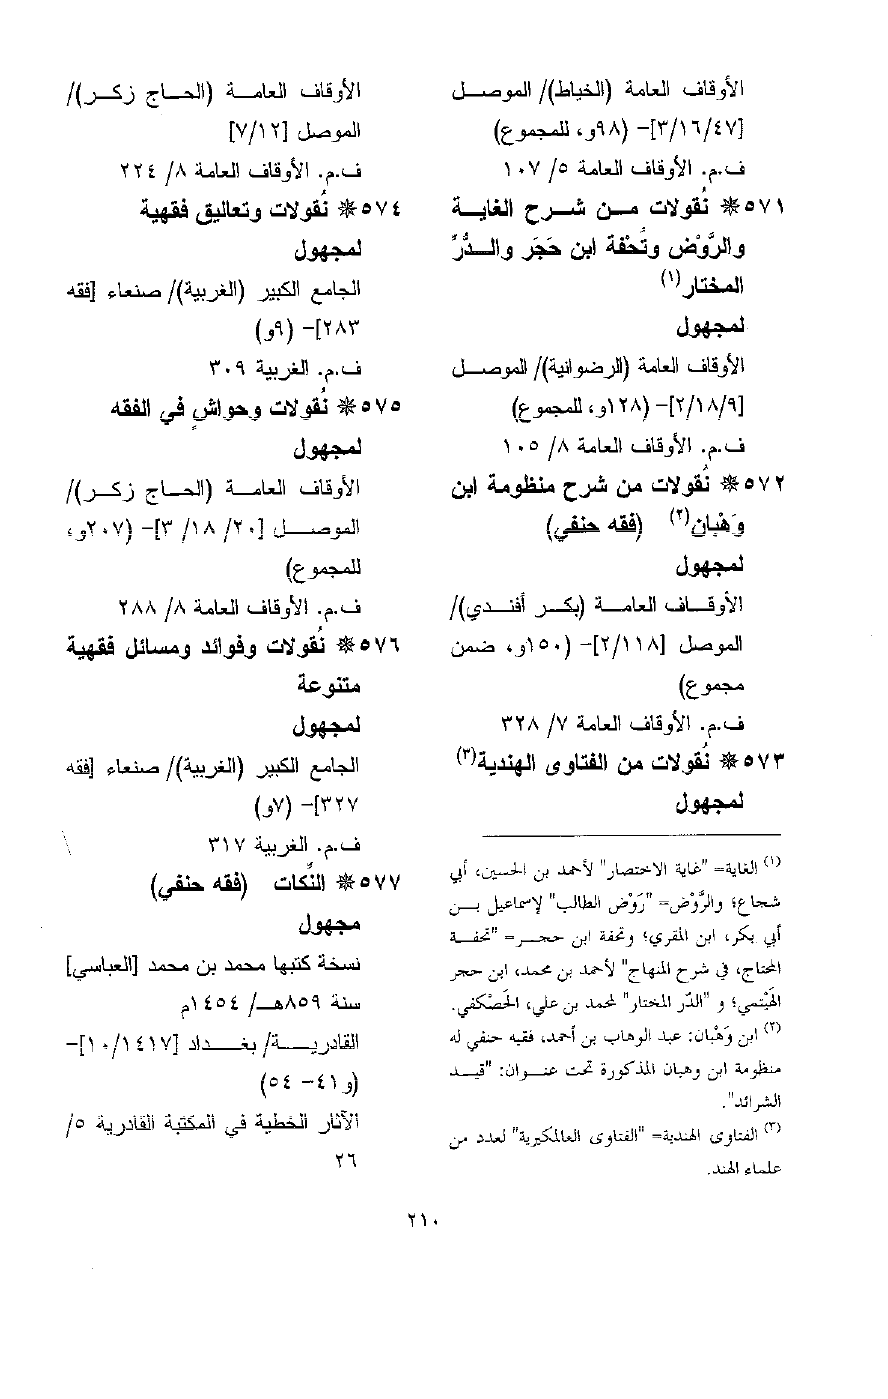 الأوقاف العامة (الخياط)/ الموصل
[٣/١٦/٤٧]- (٩٨و، للمجموع)
ف.م. الأوقاف العامة ٥/ ١٠٧
٥٧١ * نُقولات من شرح الغاية
والرَّوْض وتُحْفة ابن حَجَر والدُّرِّ
المختار(١)
لمجهول
الأوقاف العامة (الرضوانية)/ الموصل
[٢/١٨/٩]- (١٢٨و، للمجموع)
ف.م. الأوقاف العامة ٨/ ١٠٥
٥٧٢ * نُقولات من شرح منظومة ابن
وَهْبان(٢) (فقه حنفي)
لمجهول
الأوقاف العامة (بكر أفندي)/
الموصل [٢/١١٨]- (١٥٠و، ضمن
مجموع)
ف.م. الأوقاف العامة ٧/ ٣٢٨
٥٧٣ * نُقولات من الفتاوى الهندية(٣)
لمجهول
(١) الغاية= "غاية الاختصار" لأحمد بن الحسين، أبي
شجاع؛ والرَّوْض= "رَوْض الطالب" لإسماعيل بن
أبي بكر، ابن المقري؛ وتحفة ابن حجر= "تحفة
المحتاج، في شرح المنهاج" لأحمد بن محمد، ابن حجر
الهَيْتمي؛ و "الدّر المختار" لمحمد بن علي، الحَصْكفي.
(٢) ابن وَهْبان: عبد الوهاب بن أحمد، فقيه حنفي له
منظومة ابن وهبان المذكورة تحت عنوان: "قيد
الشرائد".
(٣) الفتاوى الهندية= "الفتاوى العالمكيرية" لعدد من
علماء الهند.
الأوقاف العامة (الحاج زكر)/
الموصل [٧/١٢]
ف.م. الأوقاف العامة ٨/ ٢٢٤
٥٧٤ * نُقولات وتعاليق فقهية
لمجهول
الجامع الكبير (الغربية)/ صنعاء [فقه
٢٨٣]- (٩و)
ف.م. الغربية ٣٠٩
٥٧٥ * نُقولات وحواشٍ في الفقه
لمجهول
الأوقاف العامة (الحاج زكر)/
الموصل [٢٠/ ١٨/ ٣]- (٢٠٧و،
للمجموع)
ف.م. الأوقاف العامة ٨/ ٢٨٨
٥٧٦ * نُقولات وفوائد ومسائل فقهية
متنوعة
لمجهول
الجامع الكبير (الغربية)/ صنعاء [فقه
٣٢٧]- (٧و)
ف.م. الغربية ٣١٧
٥٧٧ * النُّكات (فقه حنفي)
مجهول
نسخة كتبها محمد بن محمد [العباسي]
سنة ٨٥٩هـ/ ١٤٥٤م
القادرية/ بغداد [١٠/١٤١٧]-
(و٤١- ٥٤)
الآثار الخطية في المكتبة القادرية ٥/
٢٦
٢١٠